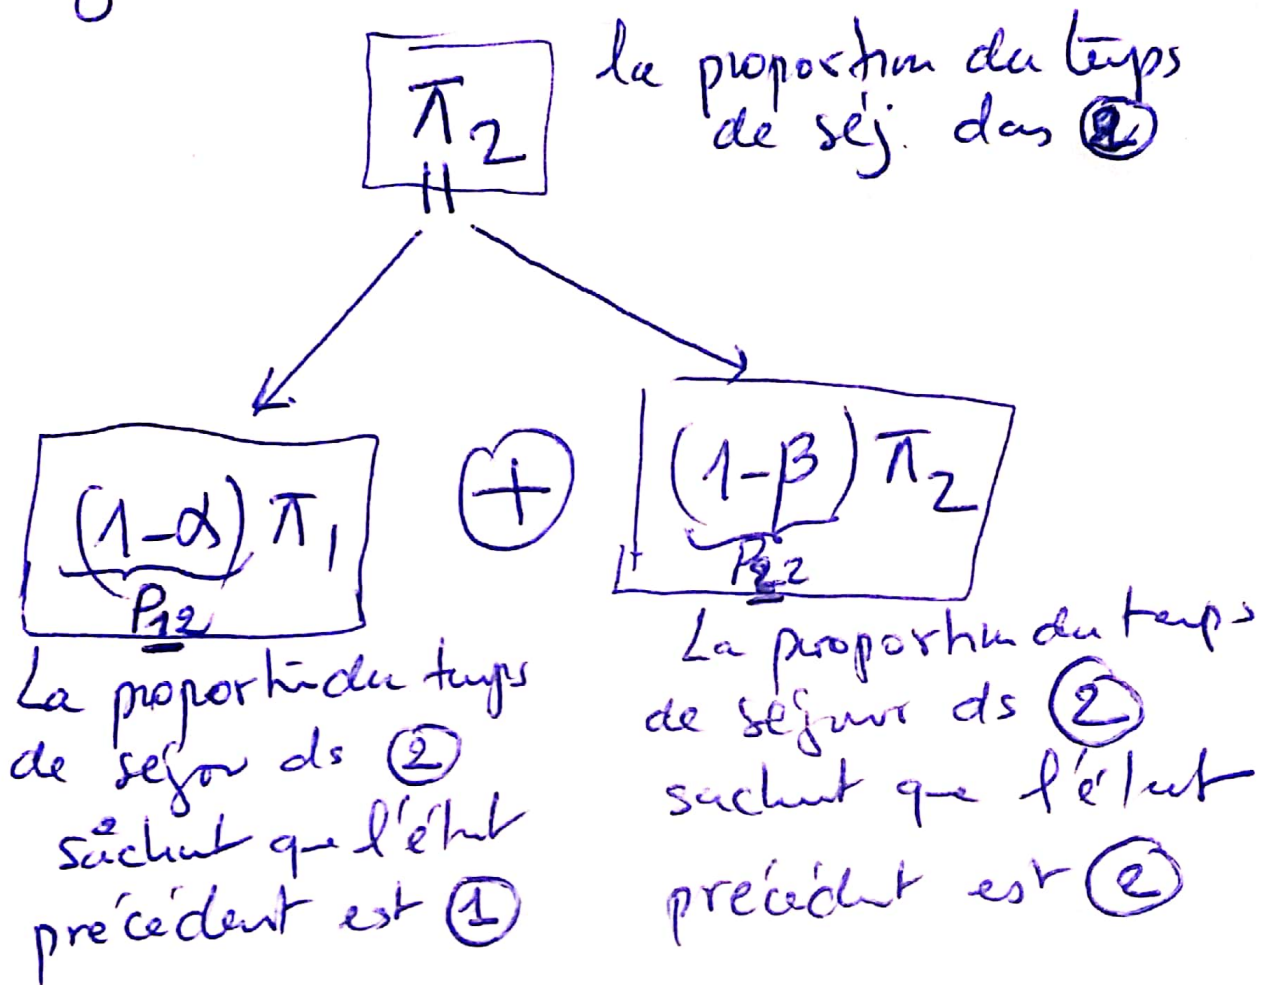 π₂
la proportion du temps
de séj. dans ②
||
(1-α) π₁
P₁₂
+
(1-β) π₂
P₂₂
La proportion du temps
de séjour ds ②
sachant que l'état
précédent est ①
La proportion du temps
de séjour ds ②
sachant que l'état
précédent est ②